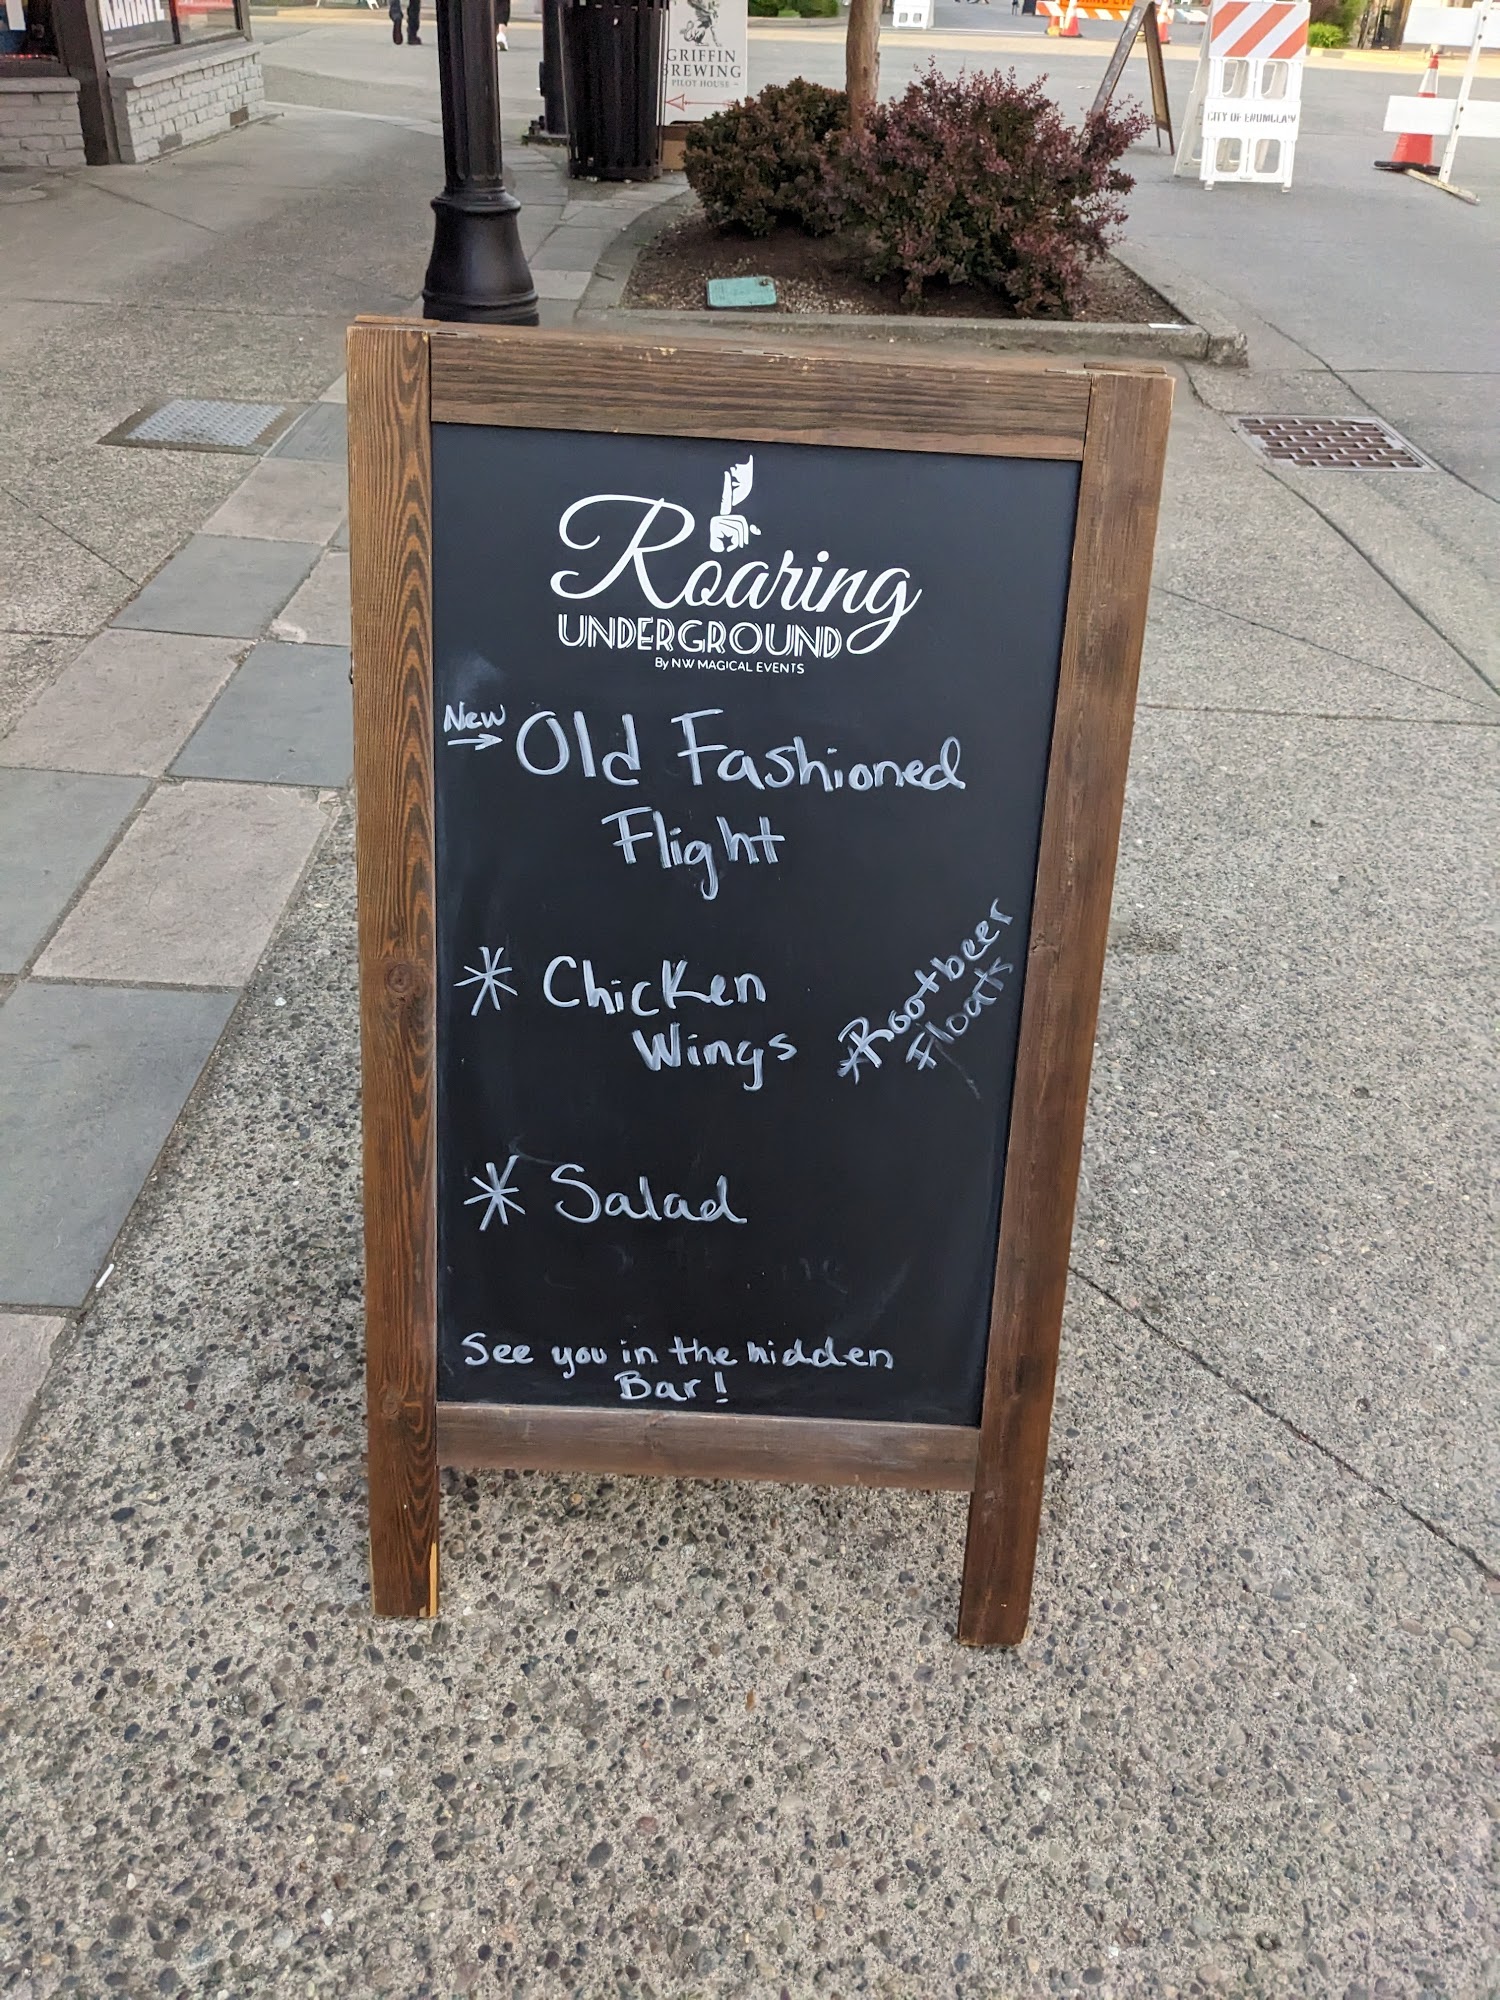 GRIFFIN
BREWING
PILOT HOUSE
CITY OF ENUMCLAW
Roaring
UNDERGROUND
By NW MAGICAL EVENTS
New
→ Old Fashioned
Flight
* Chicken
Wings
*Rootbeer
Floats
* Salad
See you in the hidden
Bar!